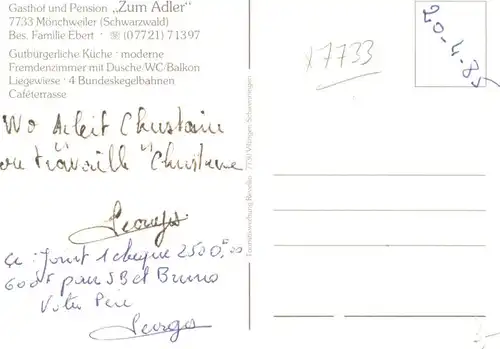 Gasthof und Pension „Zum Adler"
7733 Mönchweiler (Schwarzwald)
Bes. Familie Ebert · ☏ (07721) 71397
Gutbürgerliche Küche · moderne
Fremdenzimmer mit Dusche/WC/Balkon
Liegewiese · 4 Bundeskegelbahnen
Caféterrasse
Wo Arbeit Christiane
ou travaille "Christiane
Georges
Joint 1 chèque 2500,F00
600F pour SB et Bruno
Votre Père
Georges
Touristikwerbung Revellio · 7730 Villingen-Schwenningen
x7733
20-4-85